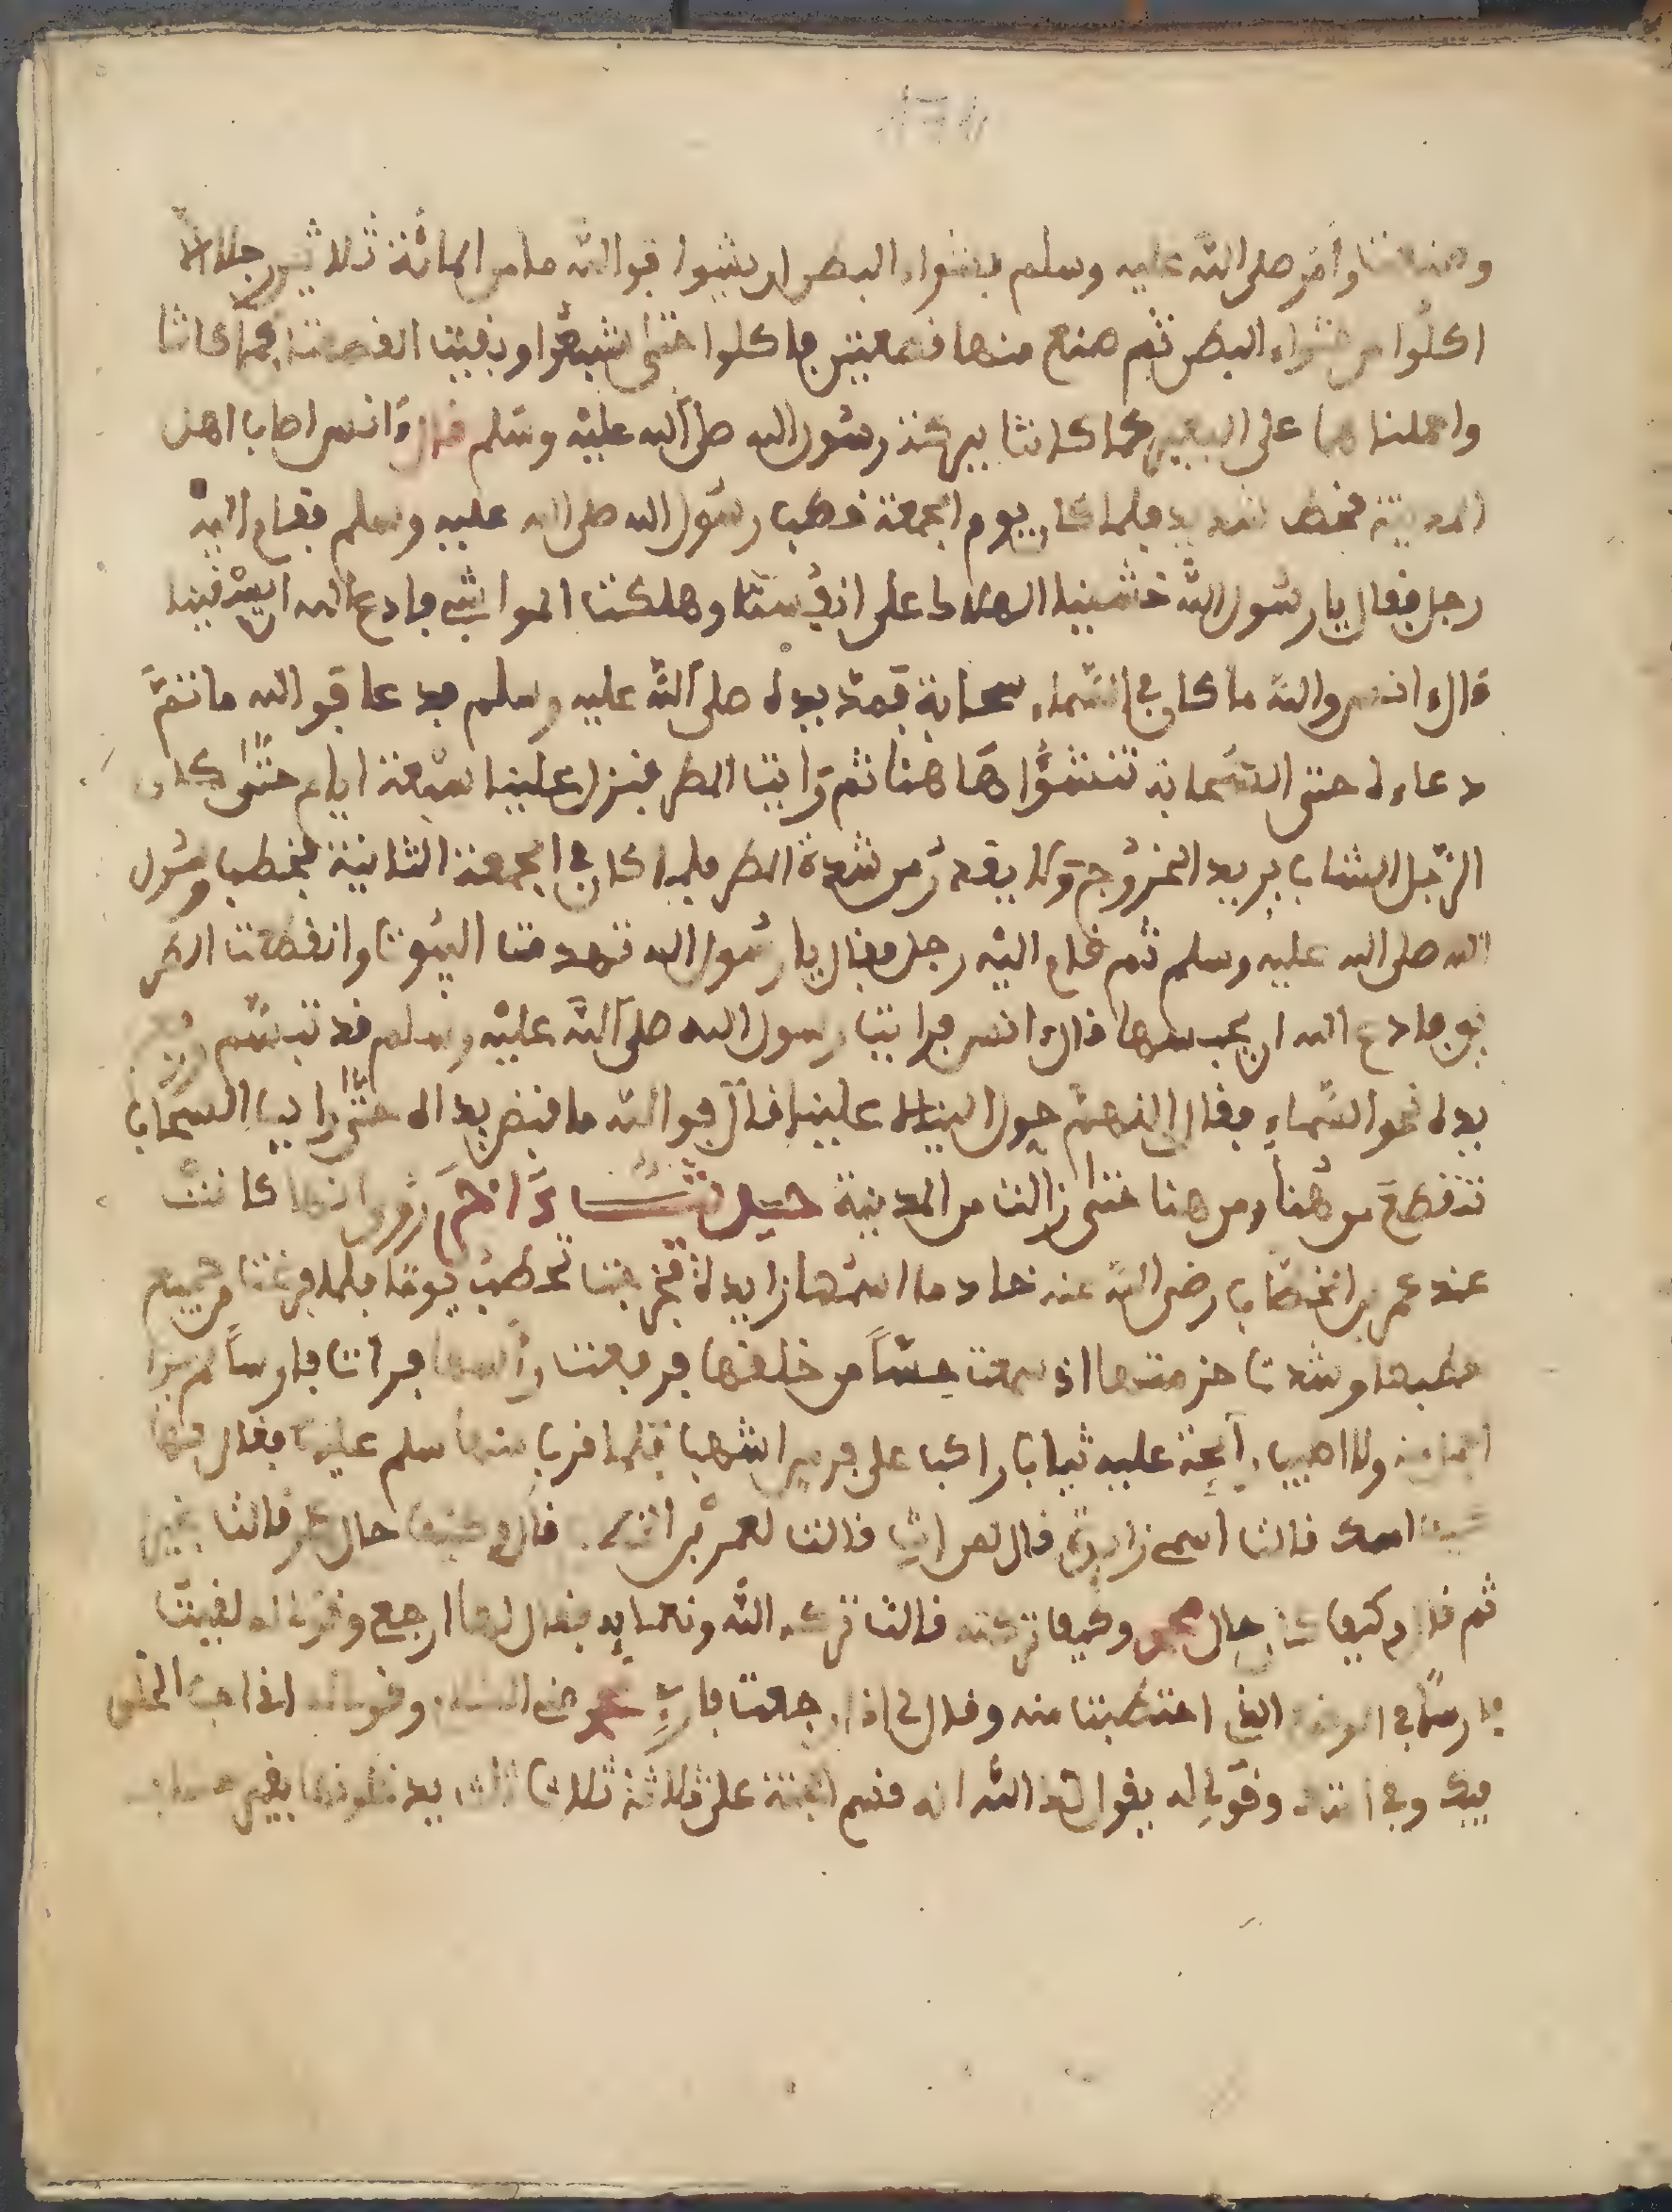 وأمر صلى الله عليه وسلم بشواء البطن ان يشوا فوالله ما من المائة ثلاثين رجلا الا
اكلوا من شواء البطن ثم صنع منها قصعتين فاكلوا حتى شبعوا وبقيت القصعتا كما كانتا
واحملناهما على البعير كما كانتا ببركة رسول الله صلى الله عليه وسلم قال انس اصاب اهل
المدينة قحط شديد فلما كان يوم الجمعة خطب رسول الله صلى الله عليه وسلم فقام اليه
رجل فقال يا رسول الله خشينا الهلاك على انفسنا وهلكت المواشي فادع الله ان يسقينا
قال انس والله ما كان في السماء سحابة فمد يده صلى الله عليه وسلم فدعا فوالله ما تم
دعاءه حتى السحابة تنشؤا هاهنا ثم رايت المطر فنزل علينا سبعة ايام حتى كان
الرجل الشاب يريد الخروج ولا يقدر من شدة المطر فلما كان في الجمعة الثانية فخطب رسول
الله صلى الله عليه وسلم ثم قام اليه رجل فقال يا رسول الله تهدمت البيوت وانقطعت
فادع الله ان يحبسها قال انس فرايت رسول الله صلى الله عليه وسلم قد تبسم
يده نحو السماء فقال اللهم حوالينا لا علينا قال فوالله ما قبض يداه حتى رايت السحاب
تتقطع من هنا ومن هنا حتى زالت من المدينة حديث آخر روي انها كانت
عند عمر بن الخطاب رضي الله عنه خادما اسمها زايدة فخرجت تحطب يوما فلما فرغت من جميع
حطبها وشدت حزمتها اذ سمعت حسا من خلفها فرفعت رأسها فرات فارسا لم ير
ولا اطيب رايحة عليه ثياب راكبا على فرس اشهب فلما قرب منها سلم عليها فقال لها
اسمك قالت اسمي زايدة قال لمن انت قالت لعمر بن قال وكيف حال عمر قالت بخير
ثم قال كيف كان حال محمد وكيف تركته قالت تركه الله ونعمايه فقال لها ارجع وقولي له لقيت
فارسا في الذي احتطبت منه وقال لي اذا رجعت فارء عمر مني السلام وقولي له
وفي وقولي له يقول لك الله انه قسم الجنة على ثلاثة ثلاث ثلث يدخلونها بغير حساب